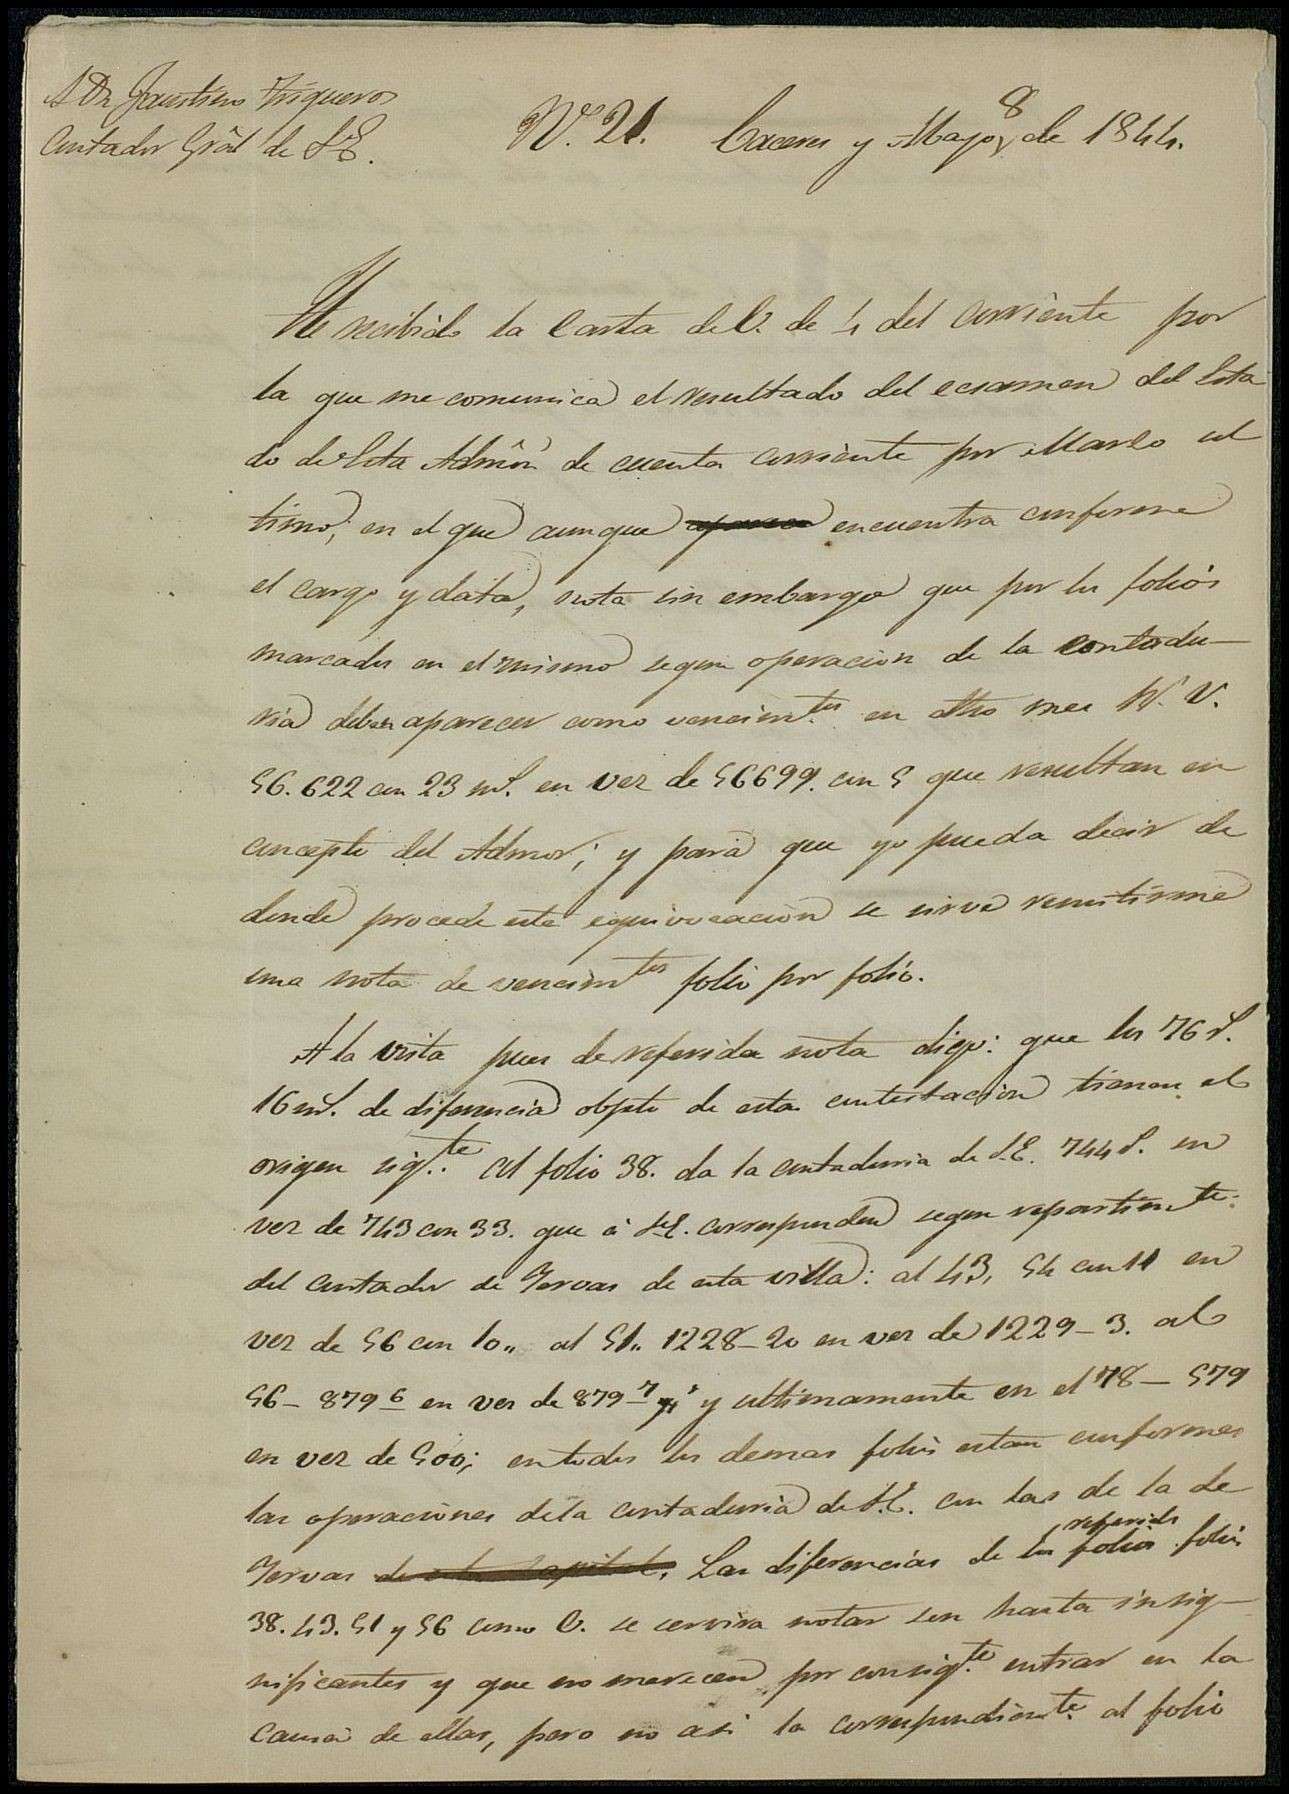 A Dn Faustino Trigueros
Contador Gral de S.E.
N.º 21. Caceres y Mayo 8 de 1844.
He recibido la Carta de V. de 4 del corriente por
la que me comunica el resultado del ecsamen del Esta
do de esta Admôn de cuenta corriente por Marzo ul
timo, en el que aunque encuentra conforme
el cargo y data, nota sin embargo que por los folios
marcados en el mismo segun operacion de la contadu-
ria deben aparecer como vencim.tos en dho mes R. V.
56.622 con 23 ms. en vez de 56699. con 5 que resultan en
concepto del Admor; y para que yo pueda decir de
donde procede esta equivocacion se sirve remitirme
una nota de vencim.tos folio por folio.
A la vista pues de referida nota digo: que los 76 rs.
16 ms. de diferencia objeto de esta contestacion tienen el
origen sig.te Al folio 38. da la contaduria de S.E. 744 rs. en
vez de 743 con 33. que á S.E. corresponden segun repartim.to
del contador de Yervas de esta villa: al 43, 54 con 11 en
vez de 56 con 10,, al 51,, 1228-20 en vez de 1229-3. al
56- 879 6 en vez de 879 7 y ultimamente en el 78- 579
en vez de 500; en todos los demas folios estan conformes
las operaciones de la contaduria de S.E. con las de la de
Yervas de esta Capital. Las diferencias de los folios referidos folios
38. 43. 51 y 56 como V. se servira notar son harto insig-
nificantes y que no merecen por consig.te entrar en la
causa de ellas, pero no asi la correspondiente al folio